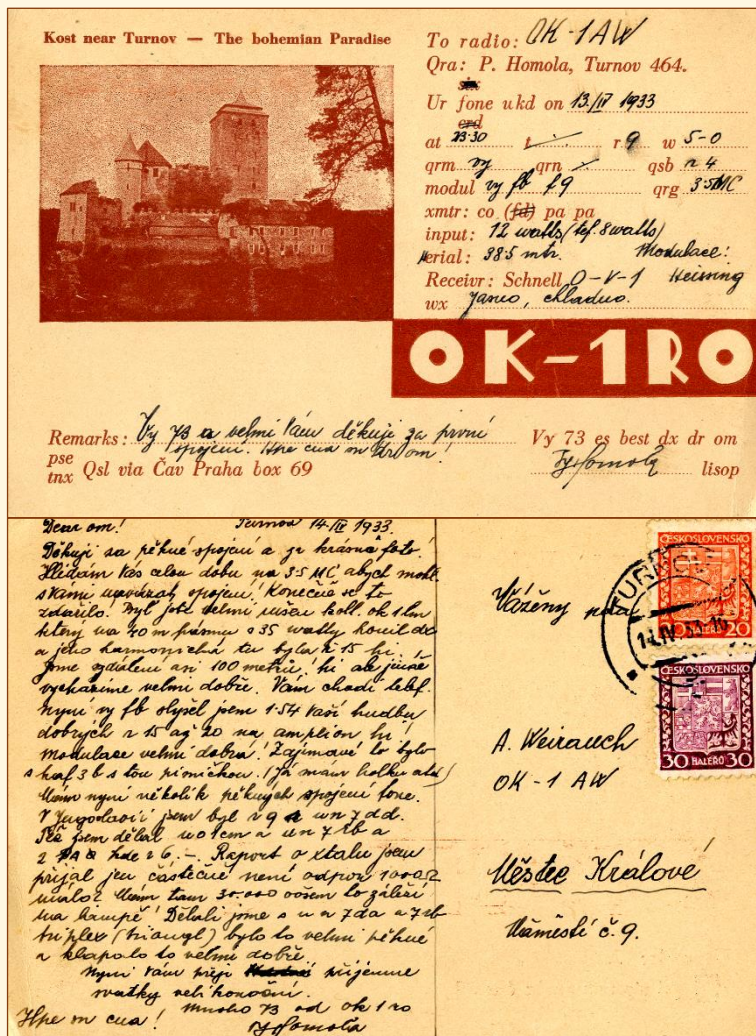 Kost near Turnov — The bohemian Paradise
To radio: OK-1AW
Qra: P. Homola, Turnov 464.
Ur fone ukd on 13./IV 1933
at 23:30 t r 9 w 5-0
qrm vy qrn qsb r 4
modul vy fb f9 qrg 3·5 MC
xmtr: co (fd) pa pa
input: 12 watts (tef. 8 watts)
aerial: 38·5 mtr. Modulace:
Receivr: Schnell O-V-1 Heising
wx Jasno, chladno.
OK-1RO
Remarks: Vy 73 a velmi Vám děkuji za první
spojení. Hpe cua m dr om!
Vy 73 es best dx dr om
pse
tnx Qsl via Čav Praha box 69
lisop
Dear om! Turnov 14./IV 1933.
Děkuji za pěkné spojení a krásné foto.
Hlídám Vás celou dobu na 3·5 MC abych mohl
s Vámi navázati spojení. Konečně se to
zdařilo. Byl jste velmi rušen koll. ok1lm
který na 40 m pásmu s 35 watty honil dx
a jeho harmonická tu byla r 15 hi.
Jsme vzdáleni asi 100 metrů! hi ale jinak
vycházíme velmi dobře. Vám chodí telef.
nyní vy fb slyšel jsem 1·54 Vaší hudbu
dobrých r 15 až 20 na amplion hi!
Modulace velmi dobrá! Zajímavé to bylo
s haf3b s tou písničkou. (Já mám holku atd)
Mám nyní několik pěkných spojení fone.
V Jugoslavii jsem byl r 9 un7dd.
jsem dělal uo1cm a un7
zde r 6.-. Raport o xtalu jsem
přijal jen částečně není odpor 1000Ω
málo? Mám tam 30.000 ovšem to záleží
na lampě! Dělali jsme s
triplex (triangl) bylo to velmi pěkné
a klapalo to velmi dobře.
Nyní Vám přeji příjemné
svátky velikonoční.
Mnoho 73 od ok1ro
Hpe m cua! Homola
ČESKOSLOVENSKO
20 20
TURNOV
14.IV.33
ČESKOSLOVENSKO
30 HALÉŘŮ 30
Vážený pan
A. Weirauch
OK-1AW
Městec Králové
Náměstí č. 9.